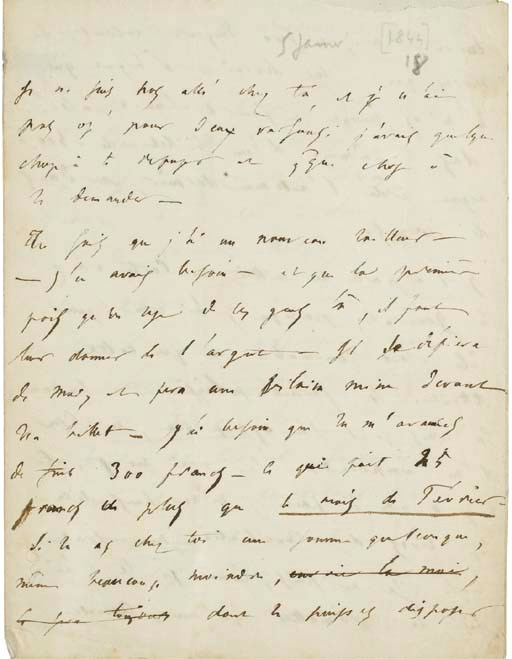 5 janvier [1844]
18
Je ne suis pas allé chez toi, et je n'ai
pas osé pour deux raisons; j'avais quelque
chose à te et qque chose à
te demander —
Tu sais que j'ai un nouveau tailleur —
— j'en avais besoin — et que la première
fois qu'on use de ces gens là, il faut
leur donner de l'argent — Il se défiera
de moi, et fera une vilaine mine devant
un billet — J'ai besoin que tu m'avances
de suite 300 francs — ce qui fait 25
francs de plus que le mois de Février —
Si tu as chez toi une somme quelconque,
même beaucoup moindre, envoie la moi,
dont tu puisses disposer